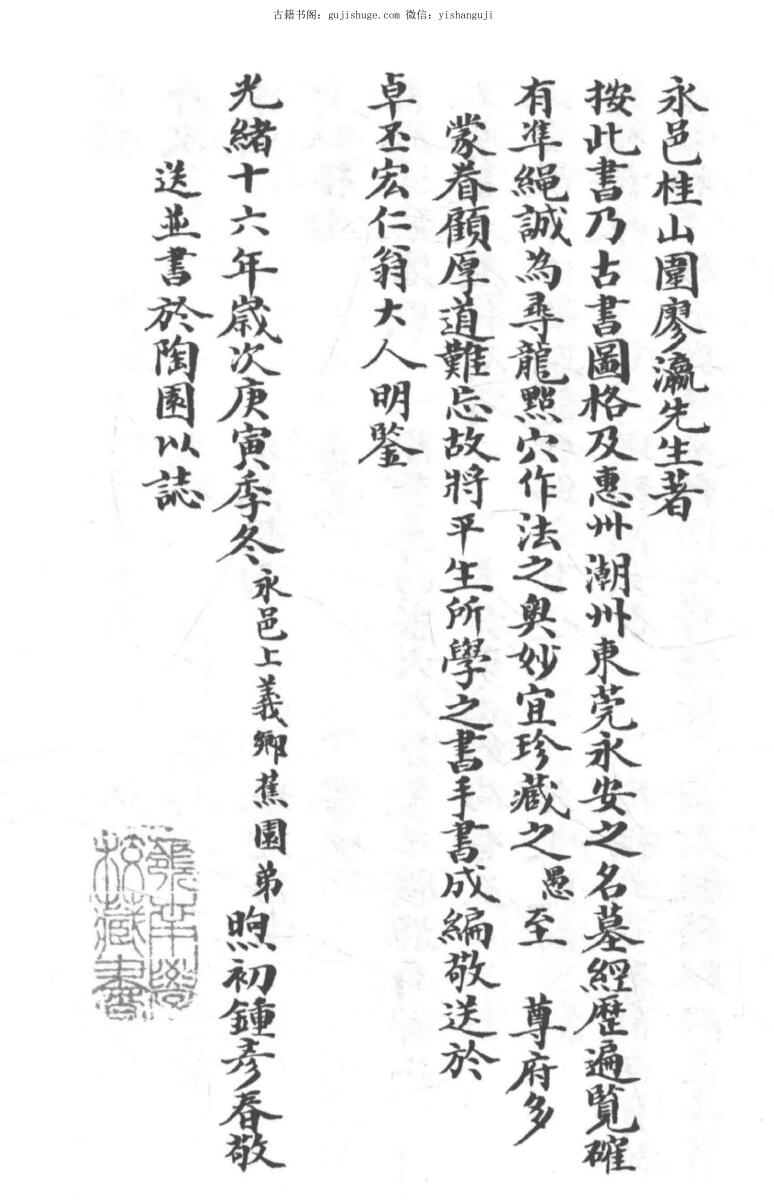 古籍书阁：gujishuge.com 微信：yishanguji
永邑桂山圍廖瀛先生著
按此書乃古書圖格及惠州潮州東莞永安之名墓經歷遍覽確
有準繩誠為尋龍點穴作法之奥妙宜珍藏之愚至 尊府多
蒙眷顧厚道難忘故將平生所學之書手書成編敬送於
卓丕宏仁翁大人明鑒
光緒十六年歲次庚寅季冬永邑上義鄉蕉園弟煦初鍾彥春敬
送並書於陶園以誌
藏書